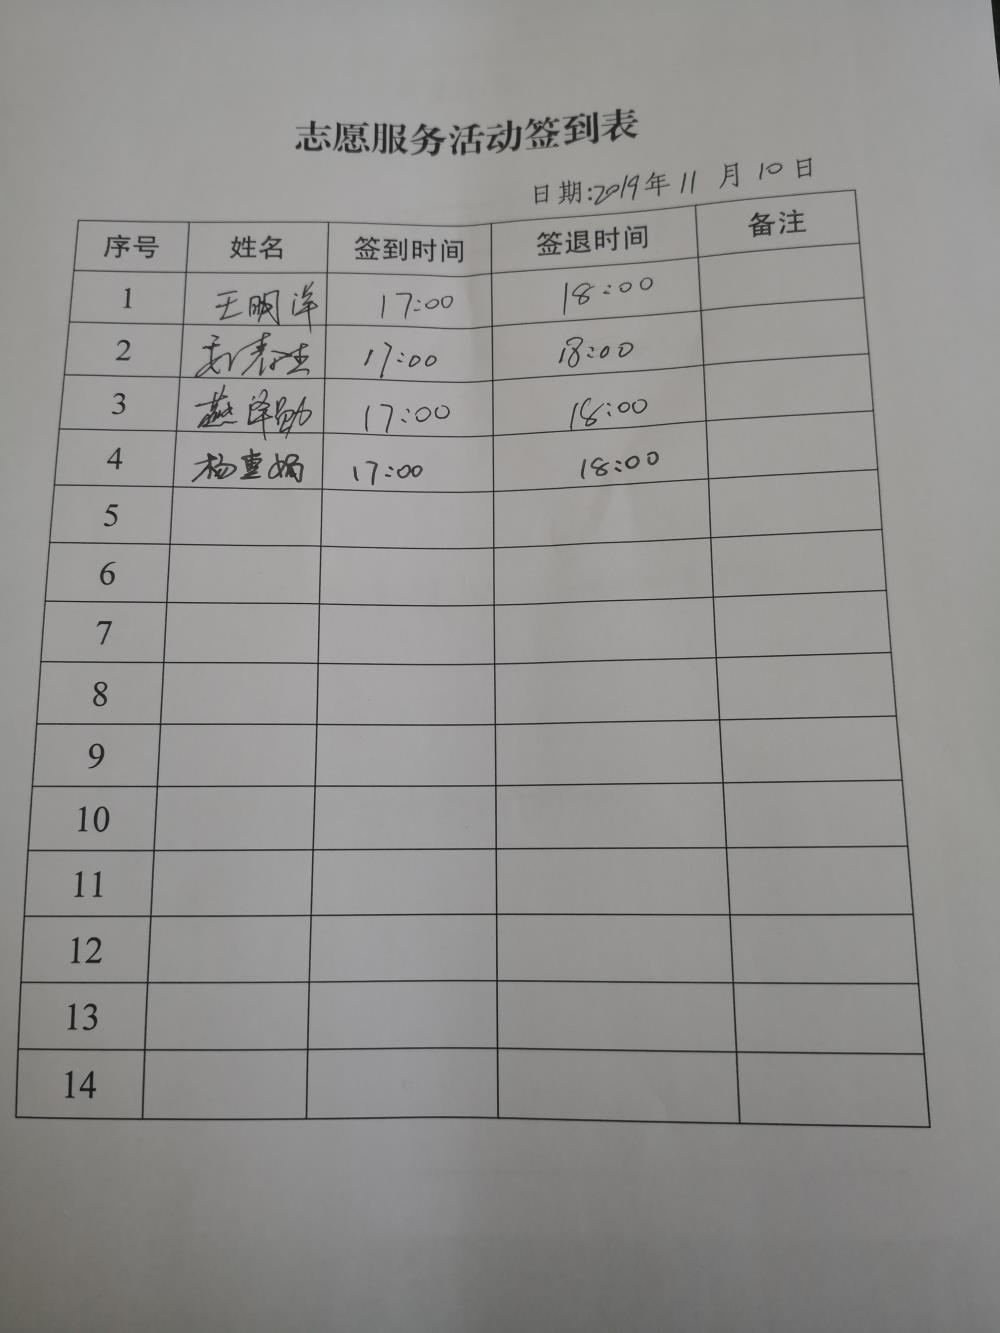 志愿服务活动签到表
日期:2019年11月10日
序号 姓名 签到时间 签退时间 备注
1 王明洋 17:00 18:00
2 17:00 18:00
3 燕泽勋 17:00 18:00
4 杨重娟 17:00 18:00
5
6
7
8
9
10
11
12
13
14